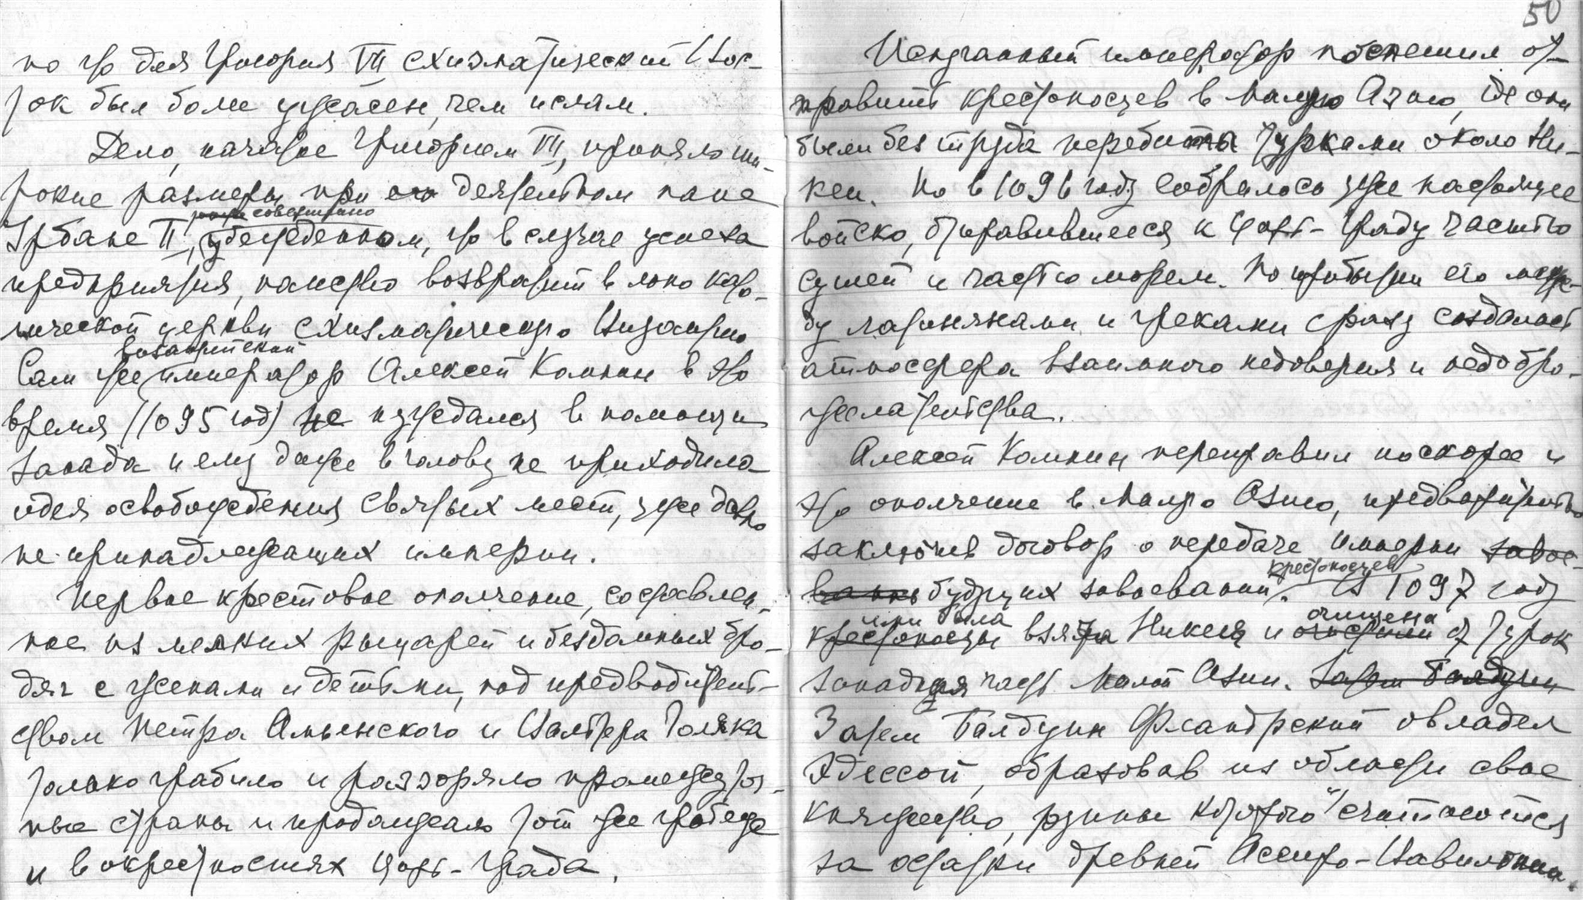 но что для Григория VII схизматический Вос-
ток был более ужасен, чем ислам.
Дело, начатое Григорием VII, приняло ши-
рокие размеры при его деятельном папе
совершенно
Урбане II, убежденном, что в случае успеха
предприятия, папство возвратит в лоно като-
лической церкви схизматическую Византию.
византийский
Сам же император Алексей Комнин в это
время (1095 год) не нуждался в помощи
Запада и ему даже в голову не приходила
идея освобождения святых мест, уже давно
не принадлежащих империи.
Первое крестовое ополчение, составлен-
ное из мелких рыцарей и бездомных бро-
дяг с женами и детьми, под предводитель-
ством Петра Амьенского и Вальтера Голяка
только грабило и разоряло промежуточ-
ные страны и продолжало тот же грабеж
и в окрестностях Царь-Града.
50
Испуганный император поспешил от-
править крестоносцев в Малую Азию, где они
были без труда перебиты турками около Ни-
кеи. Но в 1096 году собралось уже настоящее
войско, отправившееся к Царь-Граду частью
сушей и частью морем. По прибытии его меж-
ду латинянами и греками сразу создалась
атмосфера взаимного недоверия и недобро-
желательства.
Алексей Комнин переправил поскорее и
это ополчение в Малую Азию, предварительно
заключив договор о передаче империи завое-
крестоносцев
ванных будущих завоеваний. В 1097 году
ими была очищена
крестоносцы взята Никея и очистили от турок
западная часть Малой Азии. Затем Балдуин
Затем Балдуин Фландрский овладел
Эдессой, образовав из области свое
княжество, руины которого считаются
за остатки древней Ассиро-Вавилонии.